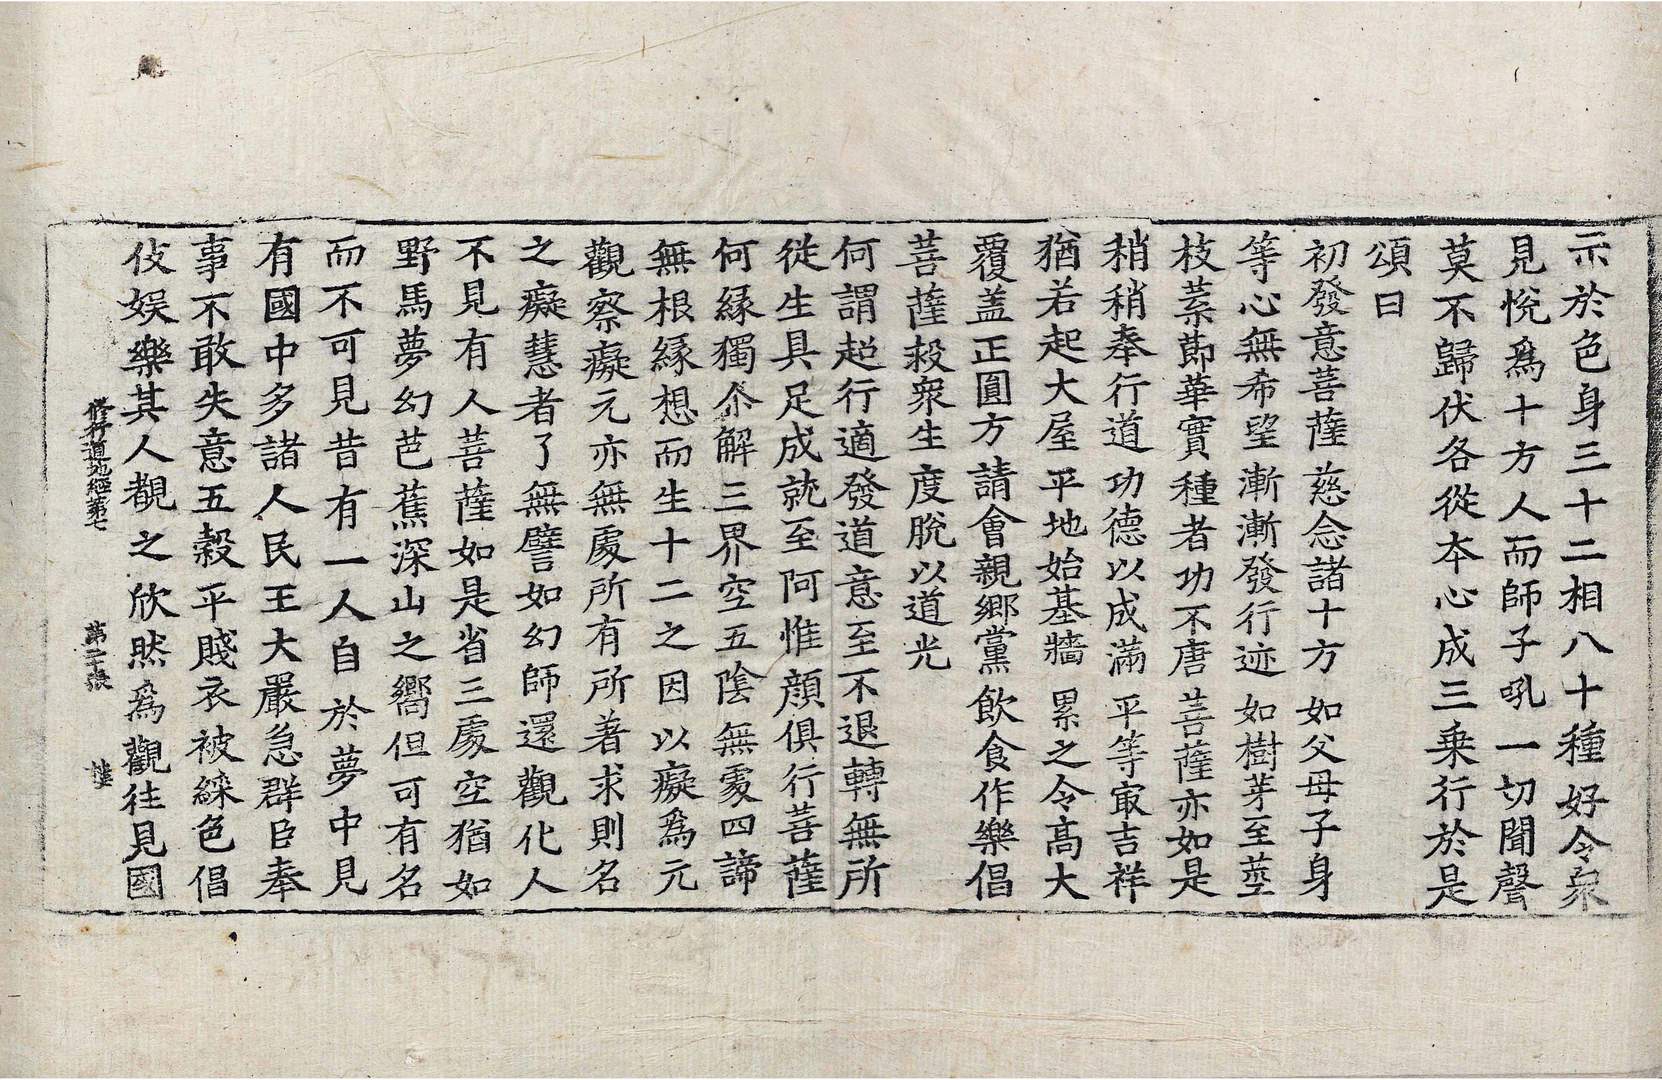 示於色身三十二相八十種好令衆
見悅爲十方人而師子吼一切聞聲
莫不歸伏各從本心成三乗行於是
頌曰
初發意菩薩 慈念諸十方 如父母子身
等心無希望 漸漸發行迹 如樹芽至莖
枝葉節華實 種者功不唐 菩薩亦如是
稍稍奉行道 功德以成滿 平等㝡吉祥
猶若起大屋 平地始基牆 累之令高大
覆盖正圓方 請會親鄉黨 飲食作樂倡
菩薩救衆生 度脫以道光
何謂超行適發道意至不退轉無所
從生具足成就至阿惟顔俱行菩薩
何縁獨尒解三界空五陰無處四諦
無根縁想而生十二之因以癡爲元
觀察癡元亦無處所有所著求則名
之癡慧者了無譬如幻師還觀化人
不見有人菩薩如是省三處空猶如
野馬夢幻芭蕉深山之嚮但可有名
而不可見昔有一人自於夢中見
有國中多諸人民王大嚴急群臣奉
事不敢失意五穀平賤衣被綵色倡
伎娱樂其人覩之欣然爲觀往見國
修行道地經第七 第二十張